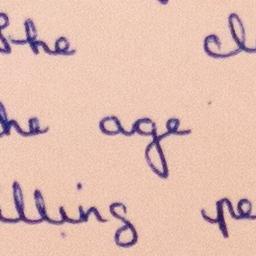 The cl
he age
lling pe